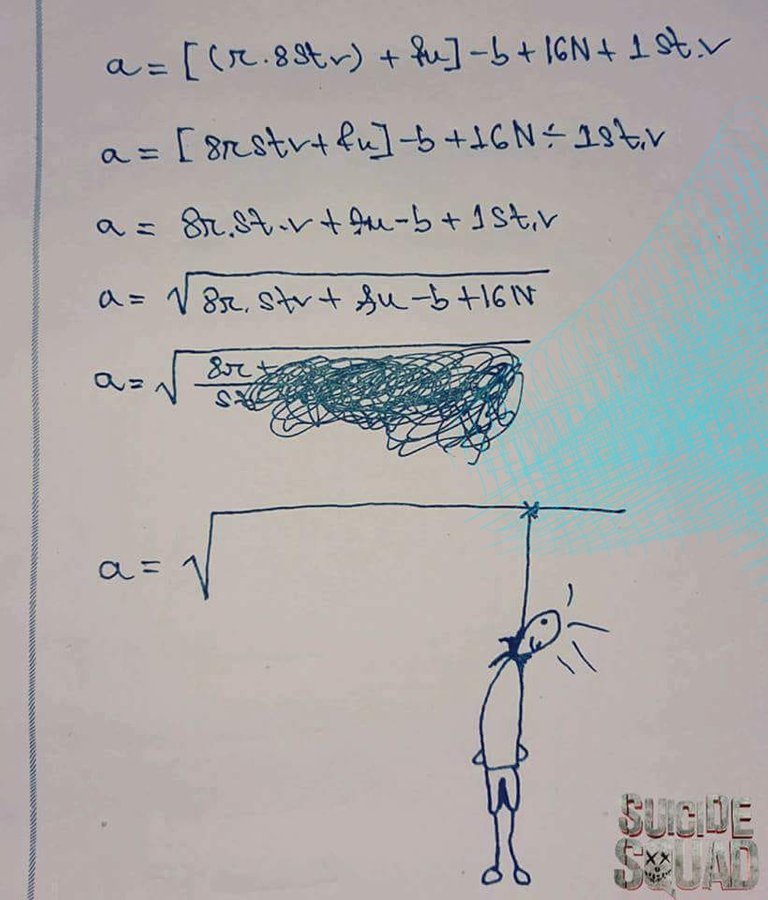 a = [(r.8st r) + fu] - b + 16N + 1 st.r
a = [8rstr + fu] - b + 16N ÷ 1st.r
a = 8r.st.r + fu - b + 1st.r
a = √8r.str + fu - b + 16N
a = √8r +
st
a = √
SUICIDE
SQUAD